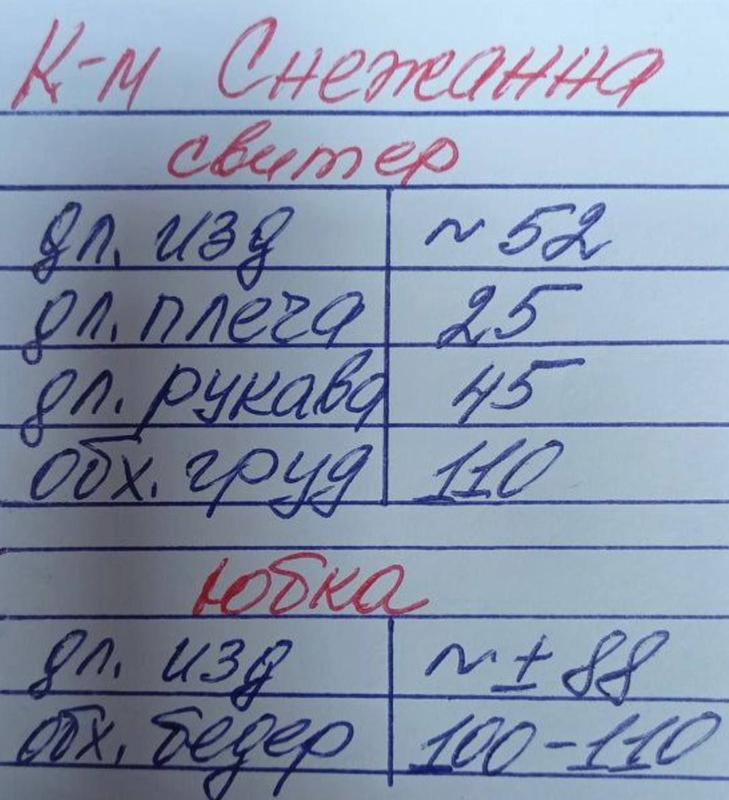 К-м Снежанна
свитер
дл. изд ~ 52
дл. плеча 25
дл. рукава 45
обх. груд 110
юбка
дл. изд ~ ± 88
обх. бедер 100-110